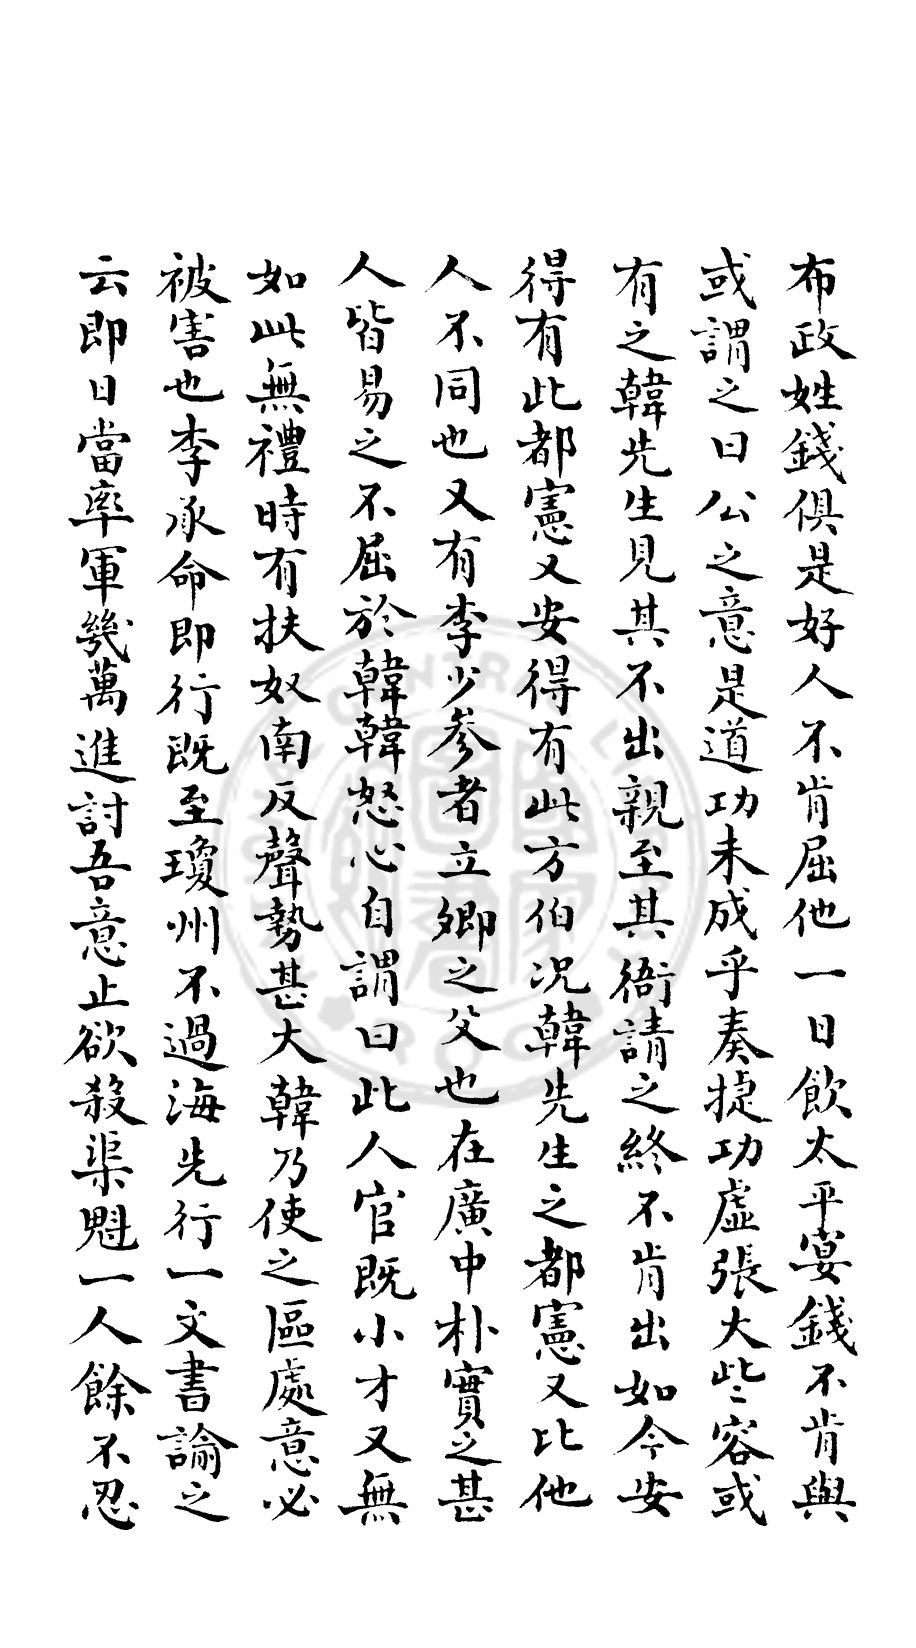 布政姓錢俱是好人不肯屈他一日飲太平宴錢不肯與
或謂之曰公之意是道功未成乎奏捷功虛張大些容或
有之韓先生見其不出親至其衙請之終不肯出如今安
得有此都憲又安得有此方伯况韓先生之都憲又比他
人不同也又有李少參者立卿之父也在廣中朴實之甚
人皆易之不屈於韓韓怒心自謂曰此人官既小才又無
如此無禮時有扶奴南反聲勢甚大韓乃使之區處意必
被害也李承命即行既至瓊州不過海先行一文書諭之
云即日當率軍幾萬進討吾意止欲殺渠魁一人餘不忍